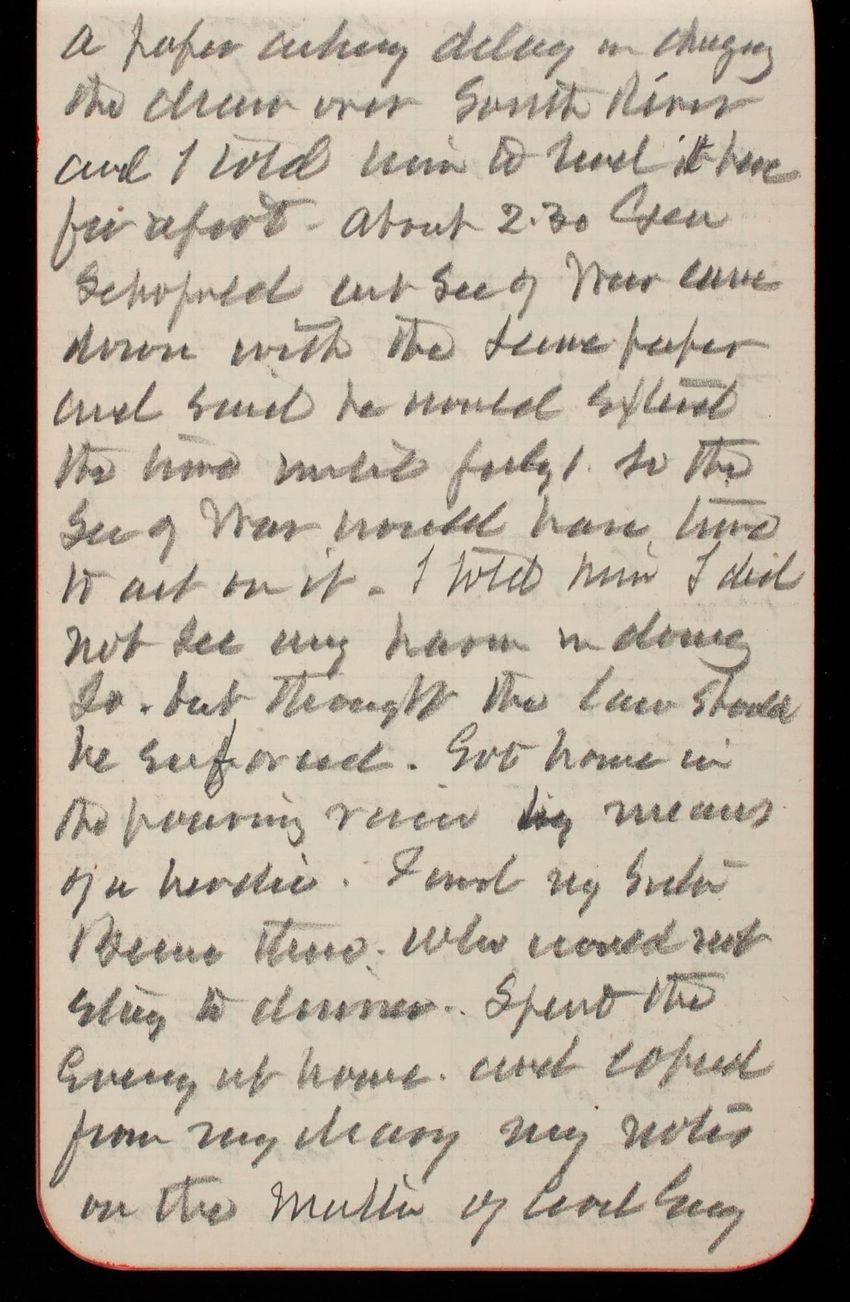 a paper asking delay in changing
the draw over South River
and I told him to send it here
for report - About 2.30 Gen
Schofield act Sec of War came
down with the same paper
and said he would extend
the time until July 1. so the
Sec of War would have time
to act on it - I told him I did
not see any harm in doing
so. but thought the law should
be enforced. Got home in
the pouring rain by means
of a herdic. Found my sister
there. who would not
stay to dinner. Spent the
Eveng at home. and copied
from my diary my notes
on the Matter of Genl